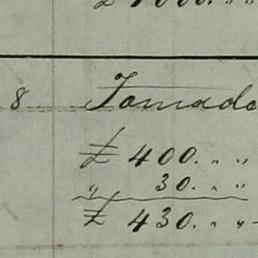 £ 1000. " "
8 Tornado
£ 400. " "
" 30. " "
£ 430. " "